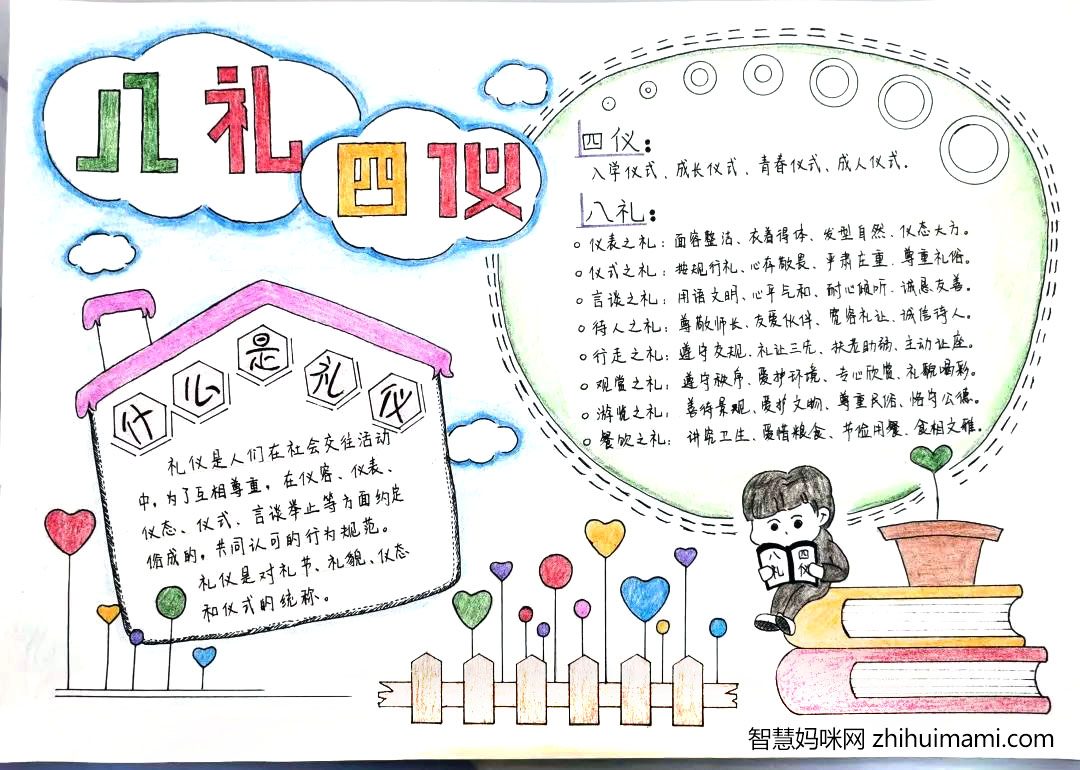 八礼
四仪
四仪：
入学仪式、成长仪式、青春仪式、成人仪式。
八礼：
仪表之礼：面容整洁、衣着得体、发型自然、仪态大方。
仪式之礼：按规行礼、心存敬畏、严肃庄重、尊重礼俗。
言谈之礼：用语文明、心平气和、耐心倾听、诚恳友善。
待人之礼：尊敬师长、友爱伙伴、宽容礼让、诚信待人。
行走之礼：遵守交规、礼让三先、扶老助弱、主动让座。
观赏之礼：遵守秩序、爱护环境、专心欣赏、礼貌喝彩。
游览之礼：善待景观、爱护文物、尊重民俗、恪守公德。
餐饮之礼：讲究卫生、爱惜粮食、节俭用餐、食相文雅。
什么是礼仪
礼仪是人们在社会交往活动
中，为了互相尊重，在仪容、仪表、
仪态、仪式、言谈举止等方面约定
俗成的，共同认可的行为规范。
礼仪是对礼节、礼貌、仪态
和仪式的统称。
八礼 四仪
智慧妈咪网 zhihuimami.com